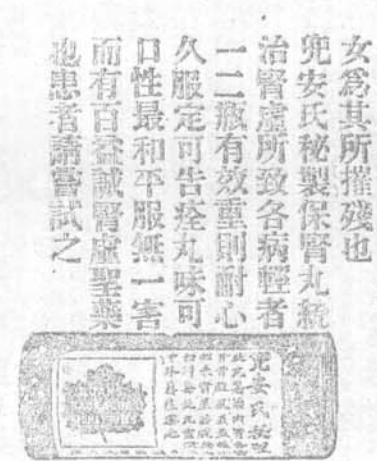 女爲其所摧殘也
兜安氏秘製保腎丸統
治腎虛所致各病輕者
一二瓶有效重則耐心
久服定可告痊丸味可
口性最和平服無一害
而有百益誠腎虛聖藥
也患者請嘗試之
兜安氏秘製